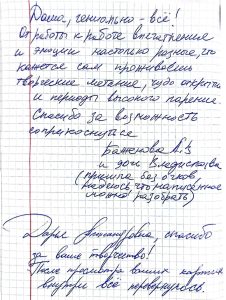 Даша, гениально - всё!
От работы к работе впечатления
и эмоции настолько разные, что
кажется сам проживаешь
творческие метания, чудо открытия
и периоды высокого парения.
Спасибо за возможность
соприкоснуться
Баженова А.В
и дочь Владислава
(пришла без очков,
надеюсь, что написанное
можно разобрать)
Дарья Александровна, спасибо
за ваше творчество!
После просмотра ваших картин
внутри всё перевернулось.